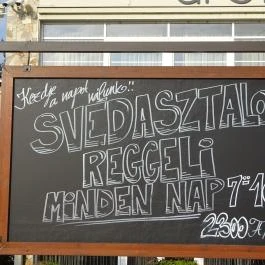 Kezdje
a napot
nálunk!!
SVÉDASZTALO
REGGELI
MINDEN NAP 7⁰⁰-10
2300 Ft,